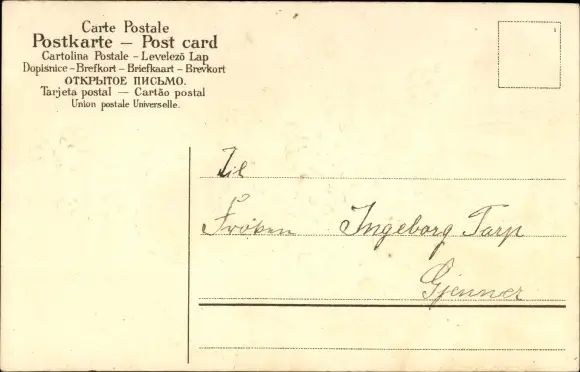 Carte Postale
Postkarte – Post card
Cartolina Postale - Levelező Lap
Dopisnice - Brefkort - Briefkaart - Brevkort
ОТКРЫТОЕ ПИСЬМО.
Tarjeta postal — Cartão postal
Union postale Universelle.
Til
Fröken Ingeborg Tarp
Gjenner